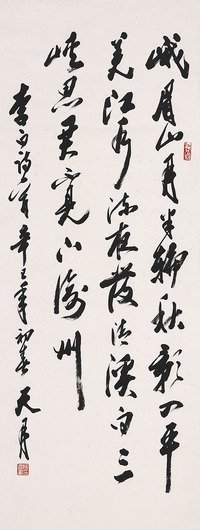 峨眉山月半輪秋影入平
羌江水流夜發清溪向三
峽思君不見下渝州
李白詩一首 辛巳年初春 天月